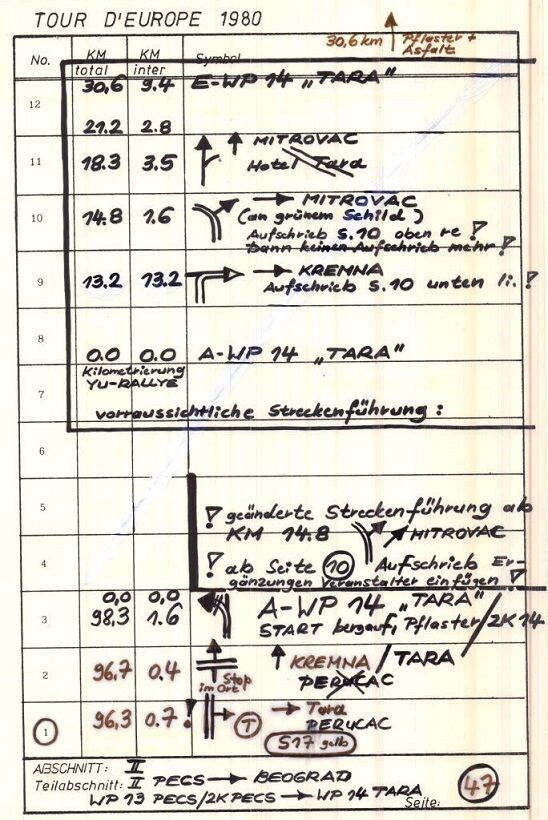 TOUR D'EUROPE 1980
30,6 km Pflaster + Asfalt
No. KM total KM inter Symbol
12 30,6 9.4 E-WP 14 „TARA"
21.2 2.8
MITROVAC
11 18.3 3.5 Hotel Tara
MITROVAC
10 14.8 1.6 (an grünem Schild)
Aufschrieb S.10 oben re !
Dann keinen Aufschrieb mehr !
KREMNA
9 13.2 13.2 Aufschrieb S.10 unten li. !
8 0.0 0.0 A-WP 14 „TARA"
Kilometrierung
YU-RALLYE
7 vorraussichtliche Streckenführung :
6
5 ! geänderte Streckenführung ab
KM 14.8 MITROVAC
4 ! ab Seite 10 Aufschrieb Er-
gänzungen Veranstalter einfügen !
0,0 0,0 A-WP 14 „TARA"
3 98,3 1.6 START bergauf, Pflaster/2K 14
2 96,7 0.4 Stop im Ort KREMNA / TARA
PERUCAC
1 96,3 0.7 ! T Tara
PERUCAC
S17 gelb
ABSCHNITT: II
Teilabschnitt: II PECS → BEOGRAD
WP 13 PECS/2K PECS → WP 14 TARA
Seite: 47